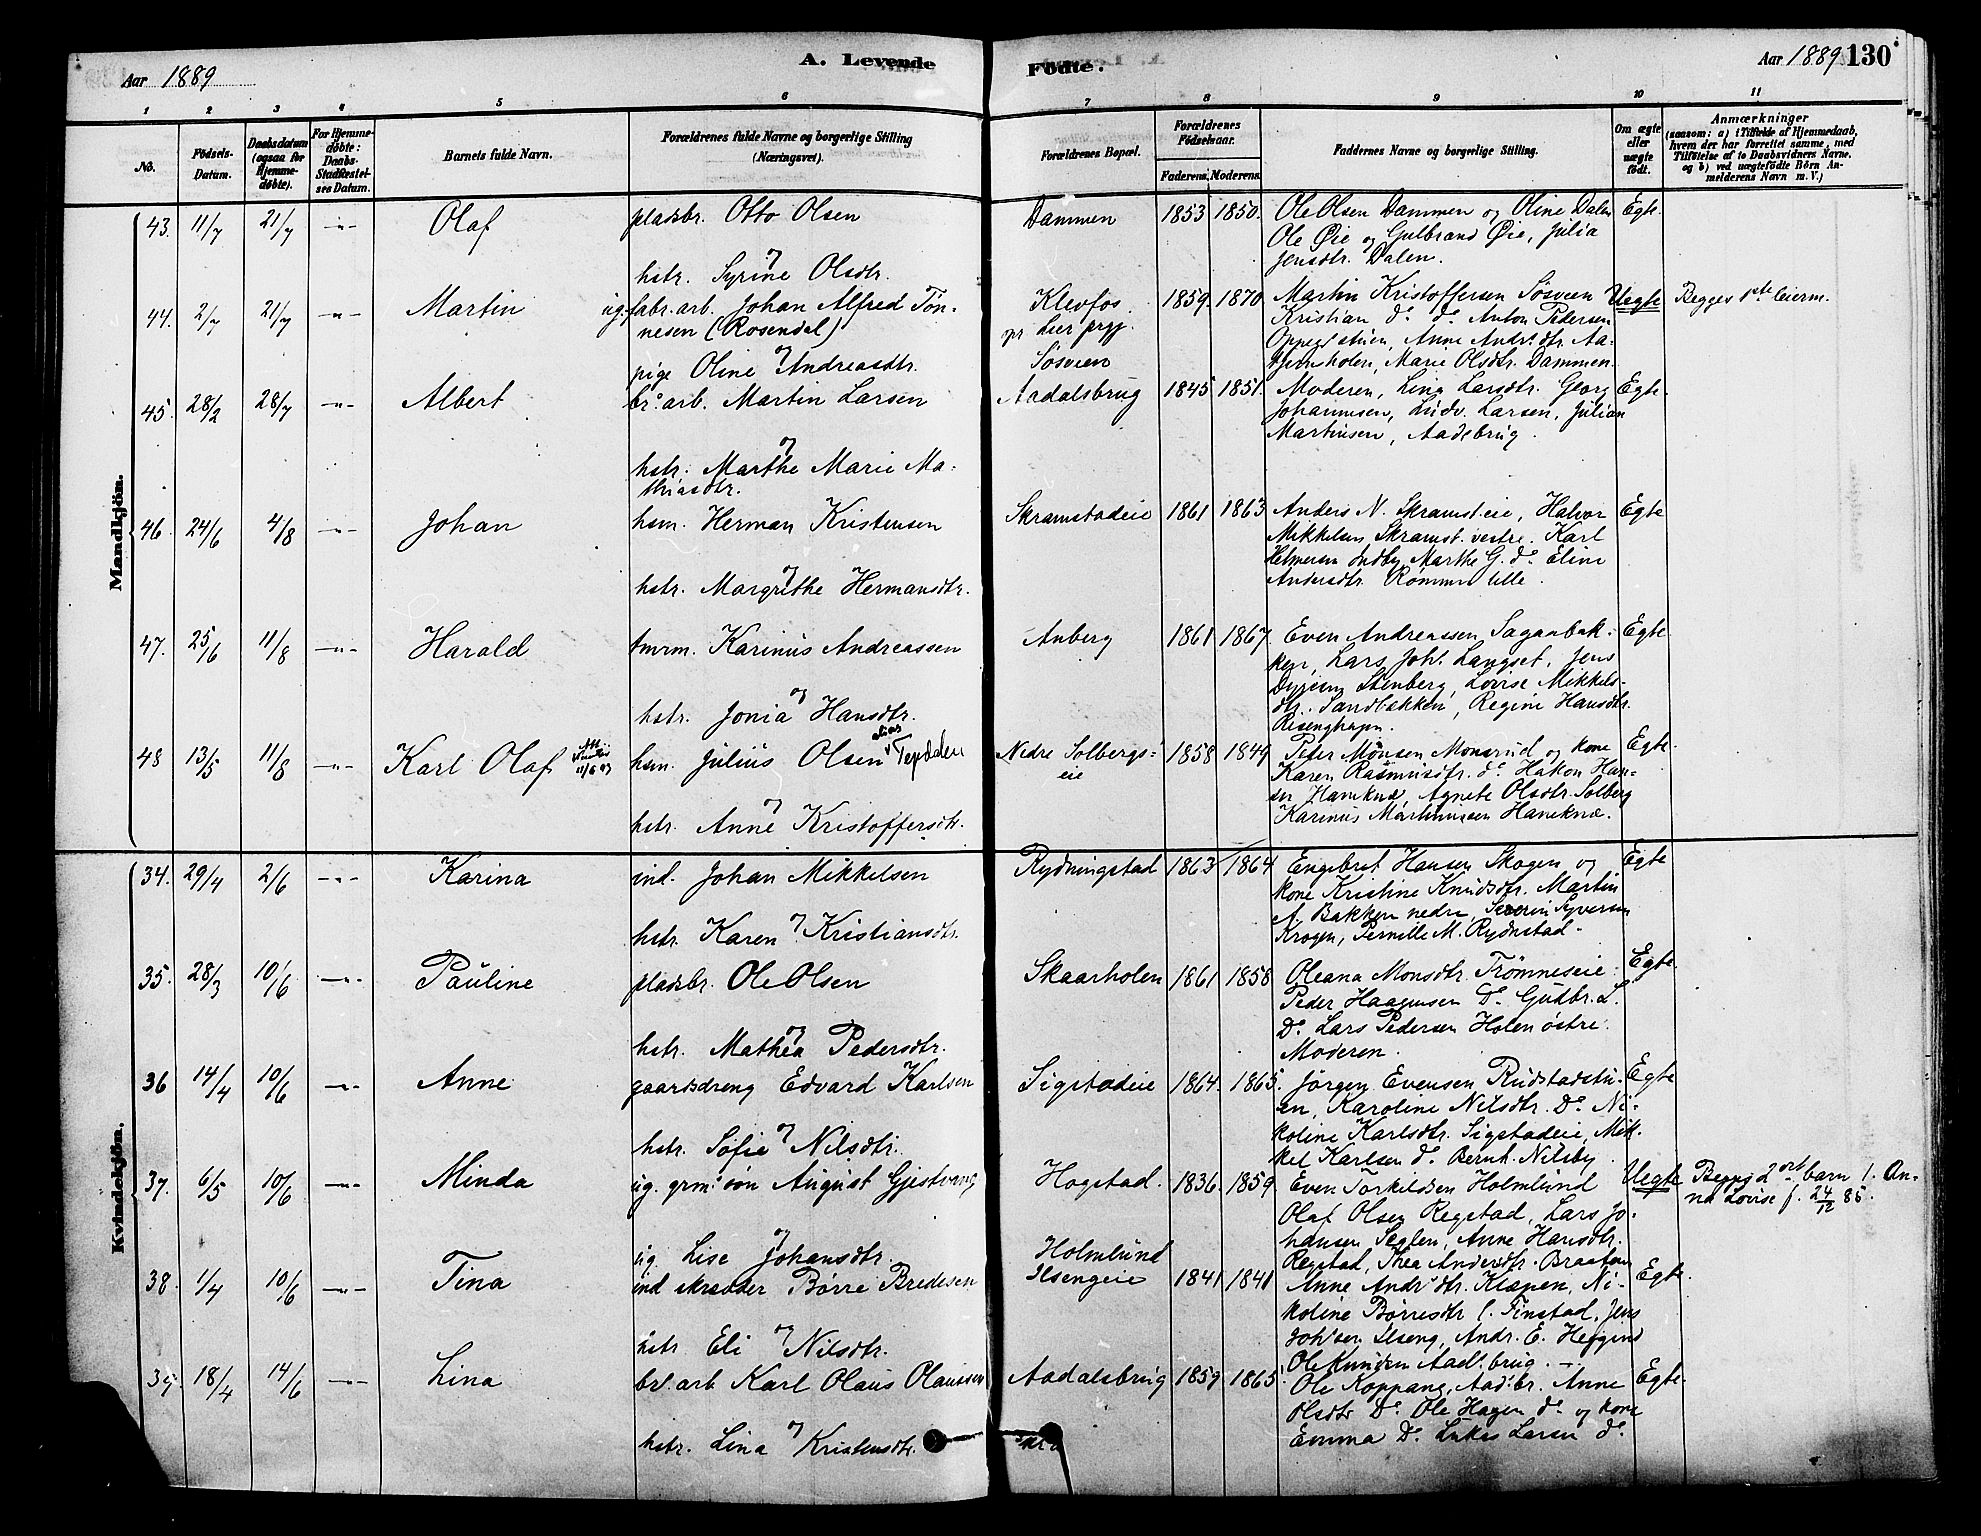 Aar 1889
A. Levende
Fødte.
Aar 1889 130
1 2 3 4 5 6 7 8 9 10 11
No.
Fødsels-
Datum.
Daabsdatum
(ogsaa for
Hjemme-
døbte).
For Hjemme-
døbte:
Daabs-
Stadfæstel-
ses Datum.
Barnets fulde Navn.
Forældrenes fulde Navne og borgerlige Stilling
(Næringsvei).
Forældrenes Bopæl.
Forældrenes
Fødselsaar.
Faderens. Moderens.
Faddernes Navne og borgerlige Stilling.
Om ægte
eller
uægte
født.
Anmærkninger
(saasom: a) i Tilfælde af Hjemmedaab,
hvem der har forrettet samme, med
Tilføielse af to Daabsvidners Navne,
og b) ved uægtefødte Børn An-
melderens Navn m. V.)
Mandkjön.
43. 11/7 21/7 -"- Olaf
pladsbr. Otto Olsen
og
hstr. Syrine Olsdtr.
Dammen 1853 1850.
Ole Olsen Dammen og Oline Dalen
Ole Øie og Gulbrand Øie, Julia
Jensdtr. Dalen.
Egte.
44. 2/7 21/7 -"- Martin
ug. fabr. arb. Johan Alfred Tøn-
nesen (Rosendal)
og
pige Oline Andreasdtr.
Klevfos
pr Lier prgj.
Søsveen
1859. 1870
Martin Kristoffersen Søsveen
Kristian do do Anton Pedersen
Oppegstuen, Anne Andrsdtr. Aa-
Marie Olsdtr. Dammen.
Uegte
Begges 1ste leierm.
45. 28/2 28/7 -"- Albert
br. arb. Martin Larsen
og
hstr. Marthe Marie Ma-
thiasdtr.
Aadalsbrug 1845 1851.
Moderen, Lina Larsdtr. Georg
Johannesen, Ludv. Larsen, Julian
Martinsen, Aadsbrug.
Egte.
46. 24/6 4/8 -"- Johan
hsm. Herman Kristensen
og
hstr. Margrethe Hermansdtr.
Skramstadeie 1861 1863
Anders N. Skramst.eie, Halvor
Mikkelsen Skramst. vestre. Karl
Helmersen Indby, Marthe G. do Eline
Andersdtr. Rømmen lille.
Egte
47. 25/6 11/8 -"- Harald
tmrm. Karinus Andreassen
og
hstr. Jonia Hansdtr.
Anberg 1861 1867.
Even Andreassen Saganbak-
ken, Lars Joh. Langset, Jens
Stenberg, Lovise Mikkels-
dtr. Sandbækken, Regine Hansdtr.
Risenghagen.
Egte
48 13/5 11/8 -"- Karl Olaf
hsm. Julius Olsen alias
og
hstr. Anne Kristoffersdtr.
Nedre Solbergs-
eie
1858 1849
Peter Monsen Monsrud og kone
Karen Rasmusdtr. do Hakon Han-
sen Haneknæ, Agnete Olsdtr. Solberg
Karinus Martinussen Haneknæ.
Egte.
Kvindekjön.
34. 29/4 2/6 -"- Karina
ind. Johan Mikkelsen
og
hstr. Karen Kristiansdtr.
Rydningstad 1863 1864
Engebret Hansen Skogen og
kone Kristine Knudsdtr. Martin
A. Bakken nedre, Severin Syversen
Krogen, Pernille M. Rydnstad.
Egte
35. 28/3 10/6 -"- Pauline
pladsbr. Ole Olsen
og
hstr. Mathea Pedersdtr.
Skaarholen 1861 1858
Oleana Monsdtr. Trømneseie
Peder Haagensen Do Gudbr. L.
Do Lars Pedersen Holen østre.
Moderen.
Egte.
36 14/4 10/6 -"- Anne
gaardsdreng Edvard Karlsen
og
hstr. Sofie Nilsdtr.
Sigstadeie 1864. 1865.
Jørgen Evensen Rudstadstu-
en, Karoline Nilsdtr. Do Ni-
koline Karlsdtr. Sigstadeie, Mik-
kel Karlsen do Bernt Nilsby.
Egte
37. 6/5 10/6 -"- Minda
ug. grm. søn August Gjestvang
og
ug. Lise Johansdtr.
Hogstad.
Holmlund
1836. 1859.
Even Torkildsen Holmlund
Olaf Olsen Regstad, Lars Jo-
hansen Seglen, Anne Hansdtr.
Regstad, Thea Andersdtr. Braaten
Uegte
Begges 2det barn 1. An-
na Lovise f. 24/12 85.
38. 1/4 10/6 -"- Tina
ind skrædder Børre Bredesen
og
hstr Eli Nilsdtr.
Ilsengeie 1841 1841
Anne Andrsdtr. Klæpen, Ni-
koline Børresdtr l. Finstad, Jens
Johsen Ilseng, Andr. E. Heggen
Ole Knudsen Aadsbrug.
Egte.
39 18/4 14/6 -"- Lina
br. arb Karl Olaus Olaussen
og
hstr. Lina Kristensdtr.
Aadalsbrug 1859 1865
Ole Koppang, Aadsbr. Anne
Olsdtr Do Ole Hagen do og kone
Emma Do Lukas Larsen do
Egte.